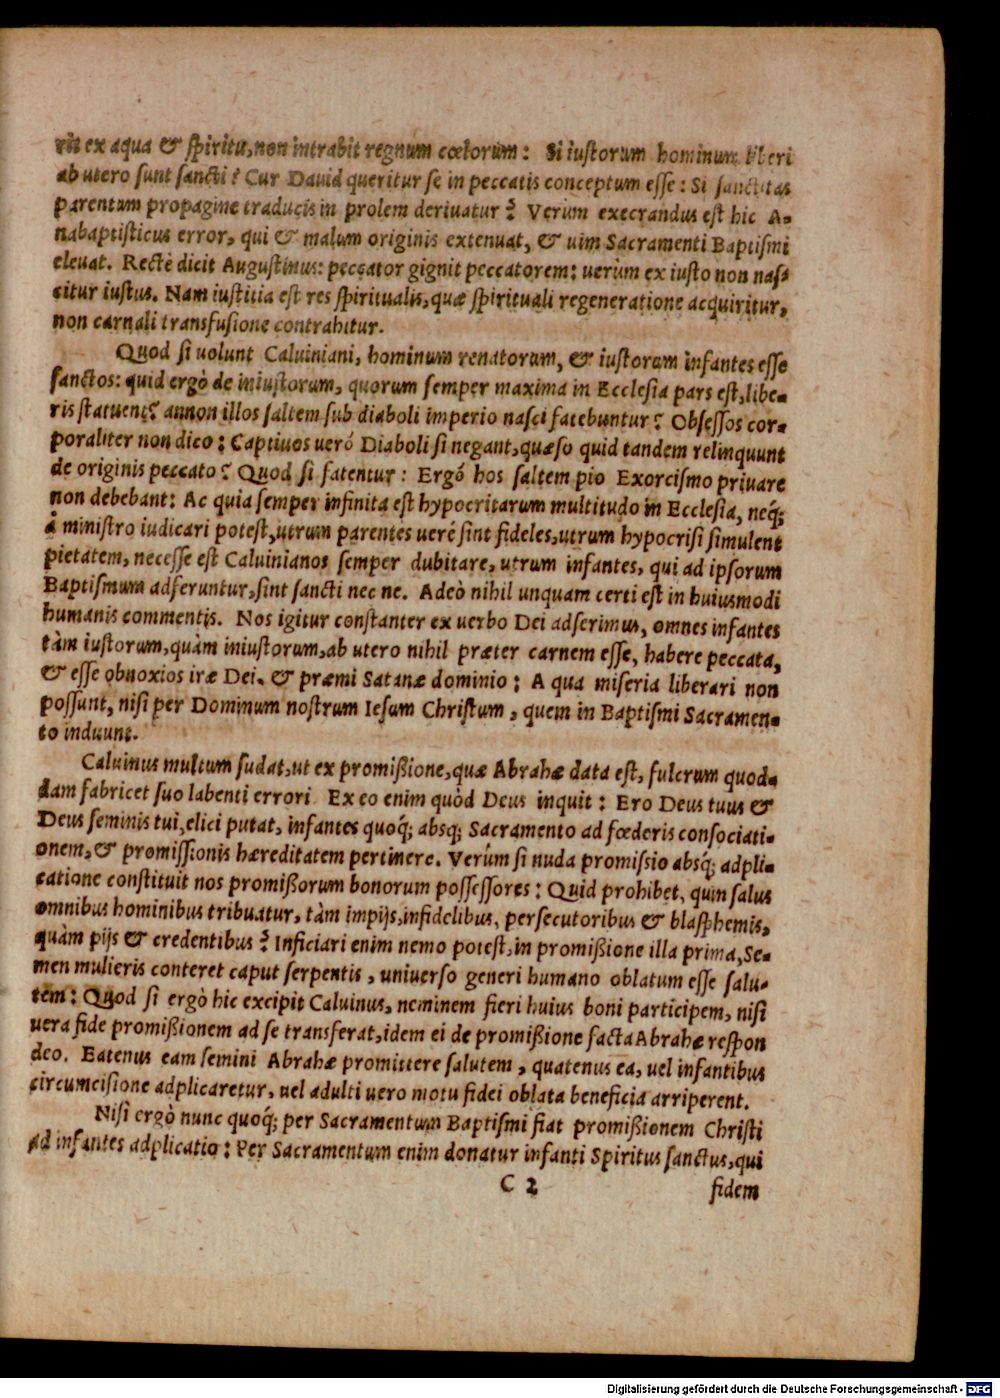 rit ex aqua & spiritu, non intrabit regnum cœlorum: Si iustorum hominum liberi
ab utero sunt sancti? Cur Dauid queritur se in peccatis conceptum esse: Si sanctitas
parentum propagine traducis in prolem deriuatur? Verum execrandus est hic A-
nabaptisticus error, qui & malum originis extenuat, & uim Sacramenti Baptismi
eleuat. Rectè dicit Augustinus: peccator gignit peccatorem: uerùm ex iusto non nas-
citur iustus. Nam iustitia est res spiritualis, quæ spirituali regeneratione acquiritur,
non carnali transfusione contrahitur.
Quod si uolunt Caluiniani, hominum renatorum, & iustorum infantes esse
sanctos: quid ergò de iniustorum, quorum semper maxima in Ecclesia pars est, libe-
ris statuent? annon illos saltem sub diaboli imperio nasci fatebuntur? Obsessos cor-
poraliter non dico: Captiuos uerò Diaboli si negant, quæso quid tandem relinquunt
de originis peccato? Quod si fatentur: Ergó hos saltem pio Exorcismo priuare
non debebant: Ac quia semper infinita est hypocritarum multitudo in Ecclesia, neq́;
à ministro iudicari potest, utrum parentes ueré sint fideles, utrum hypocrisi simulent
pietatem, necesse est Caluinianos semper dubitare, utrum infantes, qui ad ipsorum
Baptismum adferuntur, sint sancti nec ne. Adeò nihil unquam certi est in huiusmodi
humanis commentis. Nos igitur constanter ex uerbo Dei adserimus, omnes infantes
tàm iustorum, quàm iniustorum, ab utero nihil præter carnem esse, habere peccata,
& esse obnoxios iræ Dei, & præmi Satanæ dominio: A qua miseria liberari non
possunt, nisi per Dominum nostrum Iesum Christum, quem in Baptismi Sacramen-
to induunt.
Caluinus multum sudat, ut ex promißione, quæ Abrahæ data est, fulcrum quod-
dam fabricet suo labenti errori Ex eo enim quòd Deus inquit: Ero Deus tuus &
Deus seminis tui, elici putat, infantes quoq́; absq; Sacramento ad fœderis consociati-
onem, & promissionis hæreditatem pertinere. Verùm si nuda promissio absq́; adpli-
catione constituit nos promißorum bonorum possessores: Quid prohibet, quin salus
omnibus hominibus tribuatur, tàm impijs, infidelibus, persecutoribus & blasphemis,
quàm pijs & credentibus? Inficiari enim nemo potest, in promißione illa prima, Se-
men mulieris conteret caput serpentis, uniuerso generi humano oblatum esse salu-
tem: Quod si ergò hic excipit Caluinus, neminem fieri huius boni participem, nisi
uera fide promißionem ad se transferat, idem ei de promißione facta Abrahæ respon
deo. Eatenus eam semini Abrahæ promittere salutem, quatenus ea, uel infantibus
circumcisione adplicaretur, uel adulti uero motu fidei oblata beneficia arriperent.
Nisi ergò nunc quoq́; per Sacramentum Baptismi fiat promißionem Christi
ad infantes adplicatio: Per Sacramentum enim donatur infanti Spiritus sanctus, qui
C 2
fidem
Digitalisierung gefördert durch die Deutsche Forschungsgemeinschaft - DFG